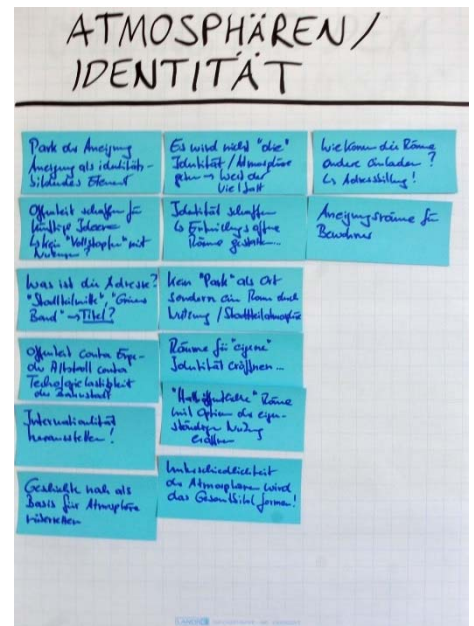 ATMOSPHÄREN/
IDENTITÄT
Park der Aneignung
Aneignung als identitäts-
bildendes Element
Offenheit schaffen für
künftige Ideen
↳ kein "Vollstopfen" mit
Nutzungen?
Was ist die Adresse?
"Stadtteilmitte", "Grünes
Band" → Titel?
Offenheit contra Enge
der Altstadt contra
Technologielastigkeit
der Bahnstadt
Internationalität
herausstellen!
Geschichte nah als
Basis für Atmosphäre
Es wird nicht "die"
Identität/Atmosphäre
geben → Wert der
Vielfalt
Identität schaffen
↳ Entwicklungsoffene
Räume gestalten...
Kein "Park" als Ort
sondern ein Raum durch
Nutzung/Stadtteilatmosphäre
Räume für "eigene"
Identität eröffnen...
"Halböffentliche" Räume
mit Option der eigen-
ständigen Nutzung
eröffnen
Unterschiedlichkeit
der Atmosphären wird
das Gesamtbild formen!
Wie können die Räume
andere einladen?
↳ Adressbildung!
Aneignungsräume für
Bewohner